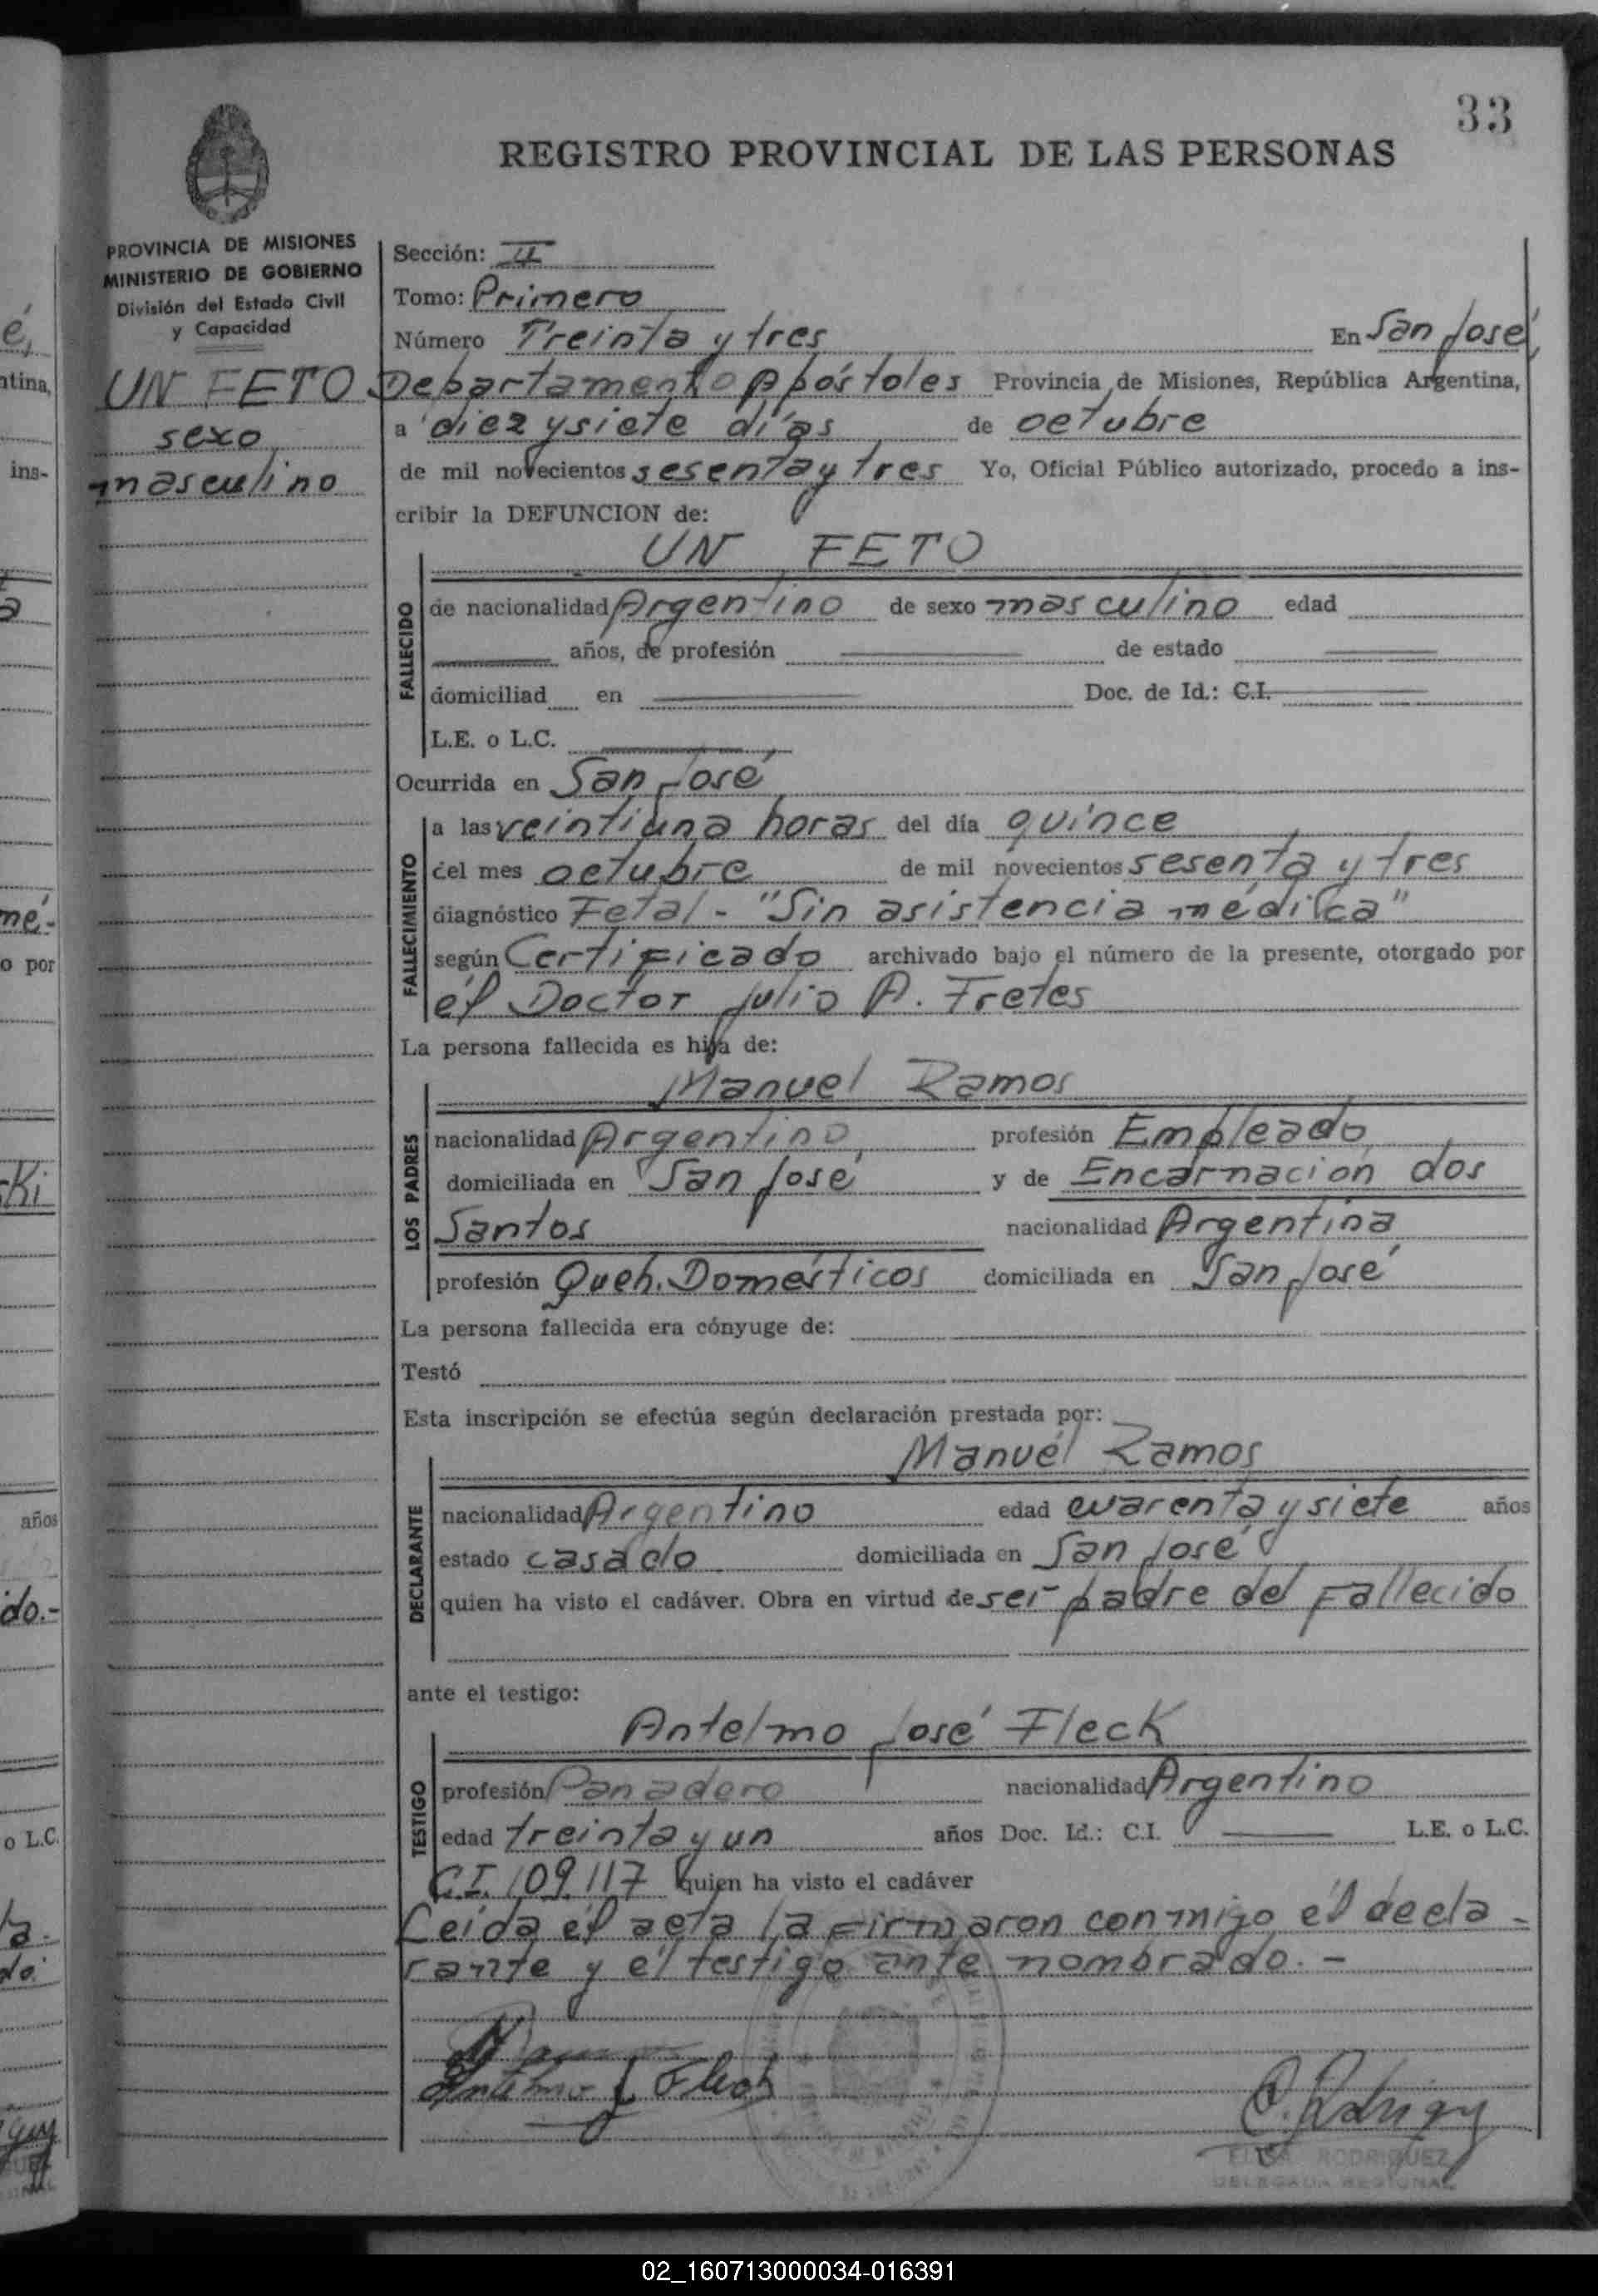 33
REGISTRO PROVINCIAL DE LAS PERSONAS
PROVINCIA DE MISIONES
MINISTERIO DE GOBIERNO
División del Estado Civil
y Capacidad
UN FETO
sexo
masculino
Sección: II
Tomo: Primero
Número Treinta y tres En San José,
Departamento Apóstoles Provincia de Misiones, República Argentina,
a diez y siete días de octubre
de mil novecientos sesenta y tres Yo, Oficial Público autorizado, procedo a ins-
cribir la DEFUNCION de:
UN FETO
FALLECIDO
de nacionalidad Argentino de sexo masculino edad
años, de profesión de estado
domiciliad en Doc. de Id.: C.I.
L.E. o L.C.
Ocurrida en San José
FALLECIMIENTO
a las veintiuna horas del día quince
del mes octubre de mil novecientos sesenta y tres
diagnóstico Fetal - "Sin asistencia médica"
según Certificado archivado bajo el número de la presente, otorgado por
el Doctor Julio A. Fretes
La persona fallecida es hija de:
Manuel Ramos
LOS PADRES
nacionalidad Argentino, profesión Empleado,
domiciliada en San José y de Encarnación dos
Santos nacionalidad Argentina
profesión Queh. Domésticos domiciliada en San José
La persona fallecida era cónyuge de:
Testó
Esta inscripción se efectúa según declaración prestada por:
Manuel Ramos
DECLARANTE
nacionalidad Argentino edad cuarenta y siete años
estado casado domiciliada en San José
quien ha visto el cadáver. Obra en virtud de ser padre del fallecido
ante el testigo:
Antelmo José Fleck
TESTIGO
profesión Panadero nacionalidad Argentino
edad treinta y un años Doc. Id.: C.I. L.E. o L.C.
C.I. 109.117 quien ha visto el cadáver
Leída el acta la firmaron conmigo el decla-
rante y el testigo ante nombrado. -
Antelmo J Fleck
RODRIGUEZ
DELEGADA REGIONAL
é,
ntina,
ins-
a
né-
o por
ki
años
do.-
o L.C.
la-
do.
02_160713000034-016391